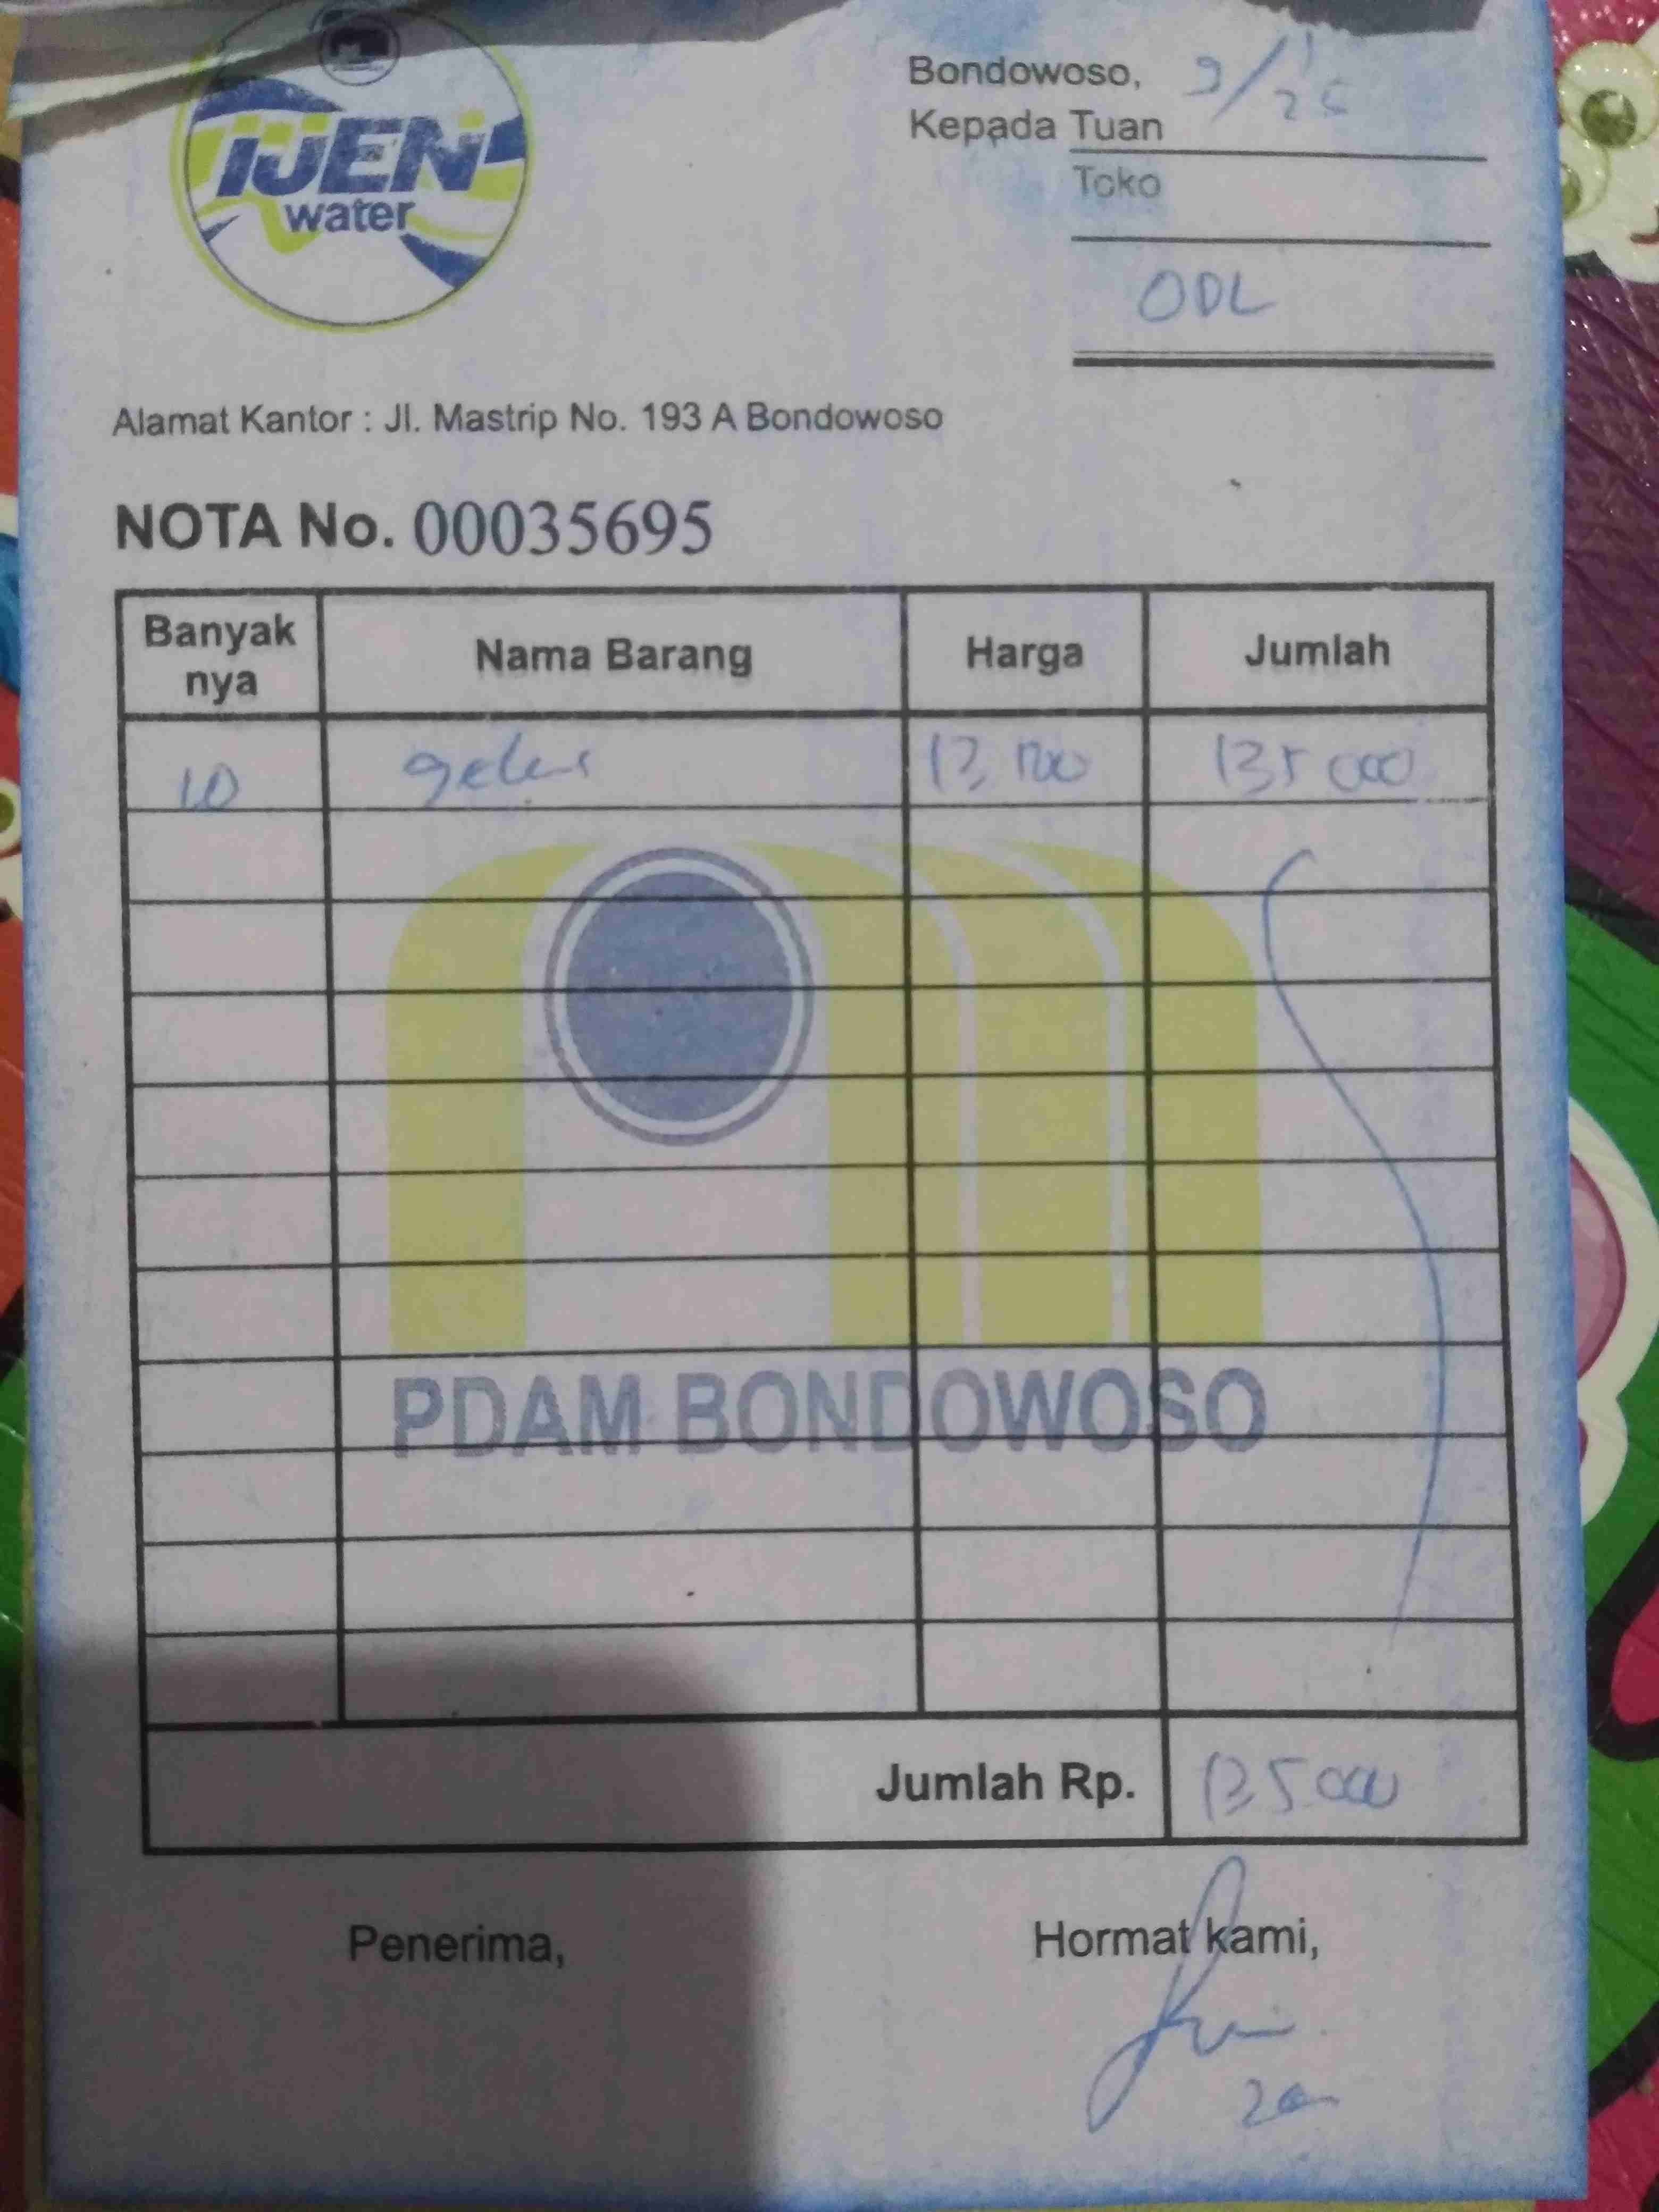 IJEN
water
Bondowoso, 9/1 25
Kepada Tuan
Toko
ODL
Alamat Kantor : Jl. Mastrip No. 193 A Bondowoso
NOTA No. 00035695
Banyak nya Nama Barang Harga Jumlah
10 gelas 13,500 135 000
PDAM BONDOWOSO
Jumlah Rp. 135 000
Penerima, Hormat kami,